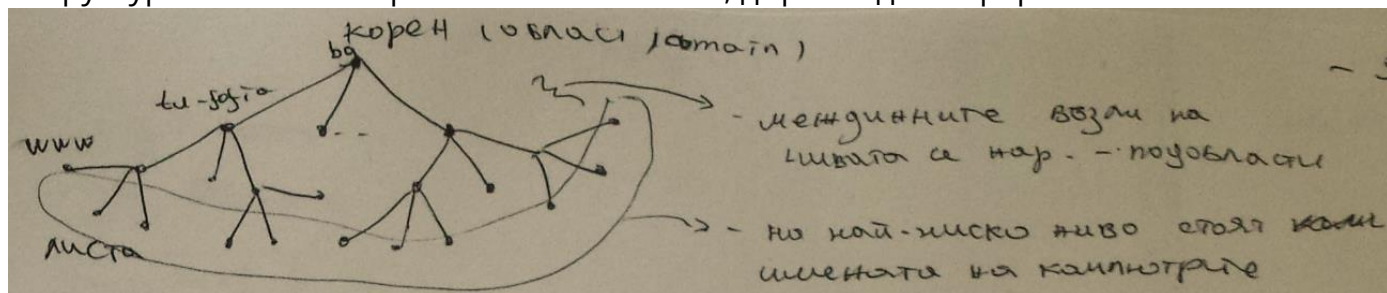 корен (област, domain)
bg
tu-sofia
www
листа
- междинните възли на
се нар. - подобласти
- на най-ниско ниво стоят
имената на компютрите